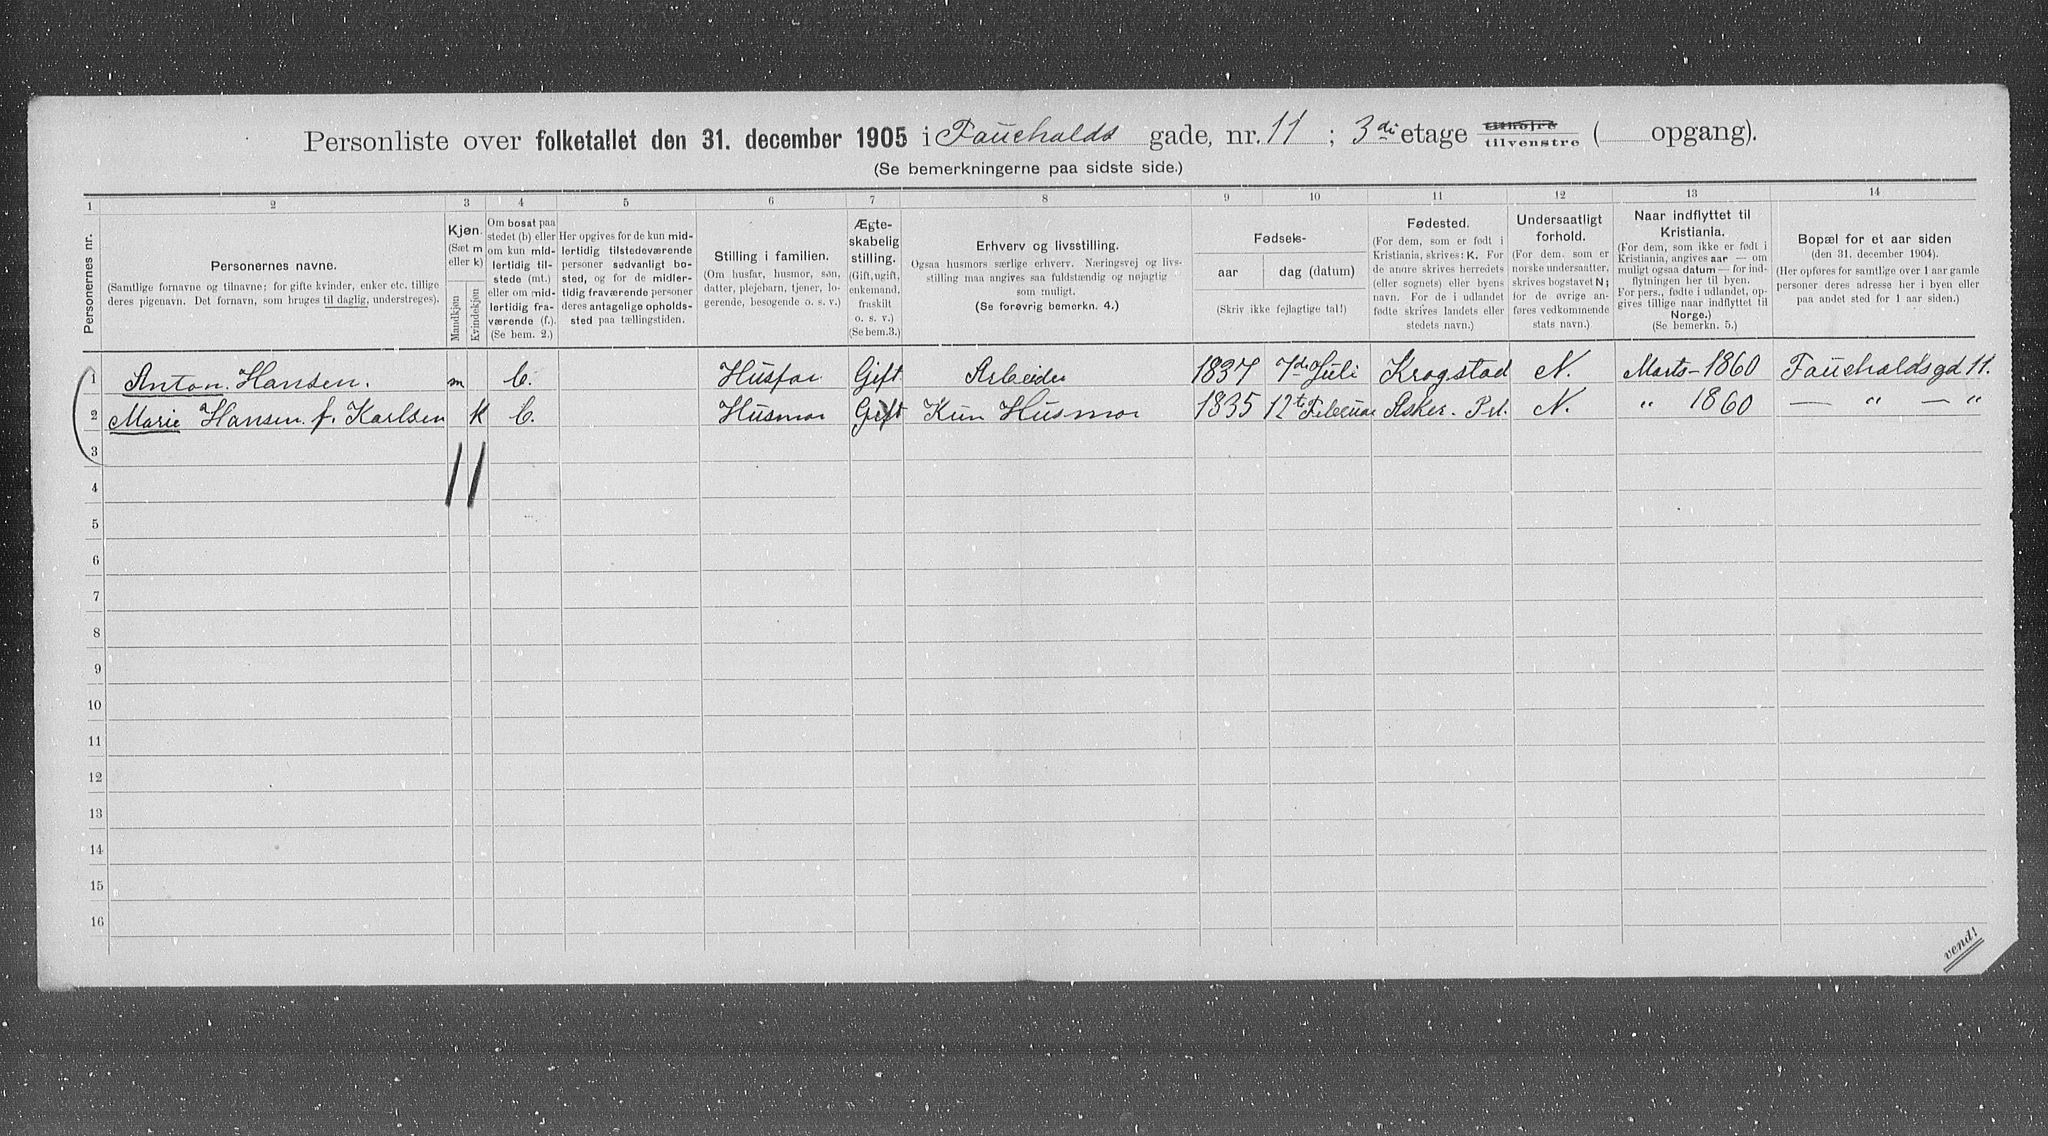 Personliste over folketallet den 31. december 1905 i Faucholds gade, nr. 11 ; 3di etage tilhøjre tilvenstre ( opgang).
(Se bemerkningerne paa sidste side.)
1 2 3 4 5 6 7 8 9 10 11 12 13 14
Personernes nr.
Personernes navne.
(Samtlige fornavne og tilnavne; for gifte kvinder, enker etc. tillige
deres pigenavn. Det fornavn, som bruges til daglig, understreges).
Kjøn.
(Sæt m
eller k)
Mandkjøn
Kvindekjøn
Om bosat paa
stedet (b) eller
om kun mid-
lertidig til-
stede (mt.)
eller om mid-
lertidig fra-
værende (f.).
(Se bem. 2.)
Her opgives for de kun mid-
lertidig tilstedeværende
personer sedvanligt bo-
sted, og for de midler-
tidig fraværende personer
deres antagelige opholds-
sted paa tællingstiden.
Stilling i familien.
(Om husfar, husmor, søn,
datter, plejebarn, tjener, lo-
gerende, besøgende o. s. v.)
Ægte-
skabelig
stilling.
(Gift, ugift,
enkemand,
fraskilt
o. s. v.)
(Se bem. 3.)
Erhverv og livsstilling.
Ogsaa husmors særlige erhverv. Næringsvej og livs-
stilling maa angives saa fuldstændig og nøjagtig
som muligt.
(Se forøvrig bemerkn. 4.)
Fødsels-
aar
dag (datum)
(Skriv ikke fejlagtige tal!)
Fødested.
(For dem, som er født i
Kristiania, skrives: K. For
de andre skrives herredets
(eller sognets) eller byens
navn. For de i udlandet
fødte skrives landets eller
stedets navn.)
Undersaatligt
forhold.
(For dem, som er
norske undersaatter,
skrives bogstavet N;
for de øvrige an-
føres vedkommende
stats navn.)
Naar indflyttet til
Kristiania.
(For dem, som ikke er født i
Kristiania, angives aar — om
muligt ogsaa datum — for ind-
flytningen her til byen.
For pers., fødte i udlandet, op-
gives tillige naar indflyttet til
Norge.)
(Se bemerkn. 5.)
Bopæl for et aar siden
(den 31. december 1904).
(Her opføres for samtlige over 1 aar gamle
personer deres adresse her i byen eller
paa andet sted for 1 aar siden.)
1 Anton Hansen. m b. Husfar Gift Arbeider 1837 7de Juli Krogstad N. Marts - 1860 Faucholdsgd 11.
2 Marie Hansen f. Karlsen k b. Husmor Gift Kun Husmor 1835 12te Februar Asker. Pr. N. " 1860 — " — "
3
4
5
6
7
8
9
10
11
12
13
14
15
16
vend!